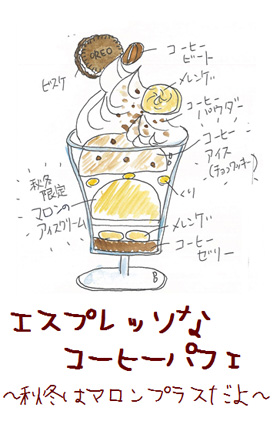 OREO
コーヒー
ビート
メレンゲ
ビスケ
コーヒー
パウダー
コーヒー
アイス
(チョコクッキー)
秋冬
限定
マロンの
アイスクリーム
くり
メレンゲ
コーヒー
ゼリー
エスプレッソな
コーヒーパフェ
～秋冬はマロンプラスだよ～